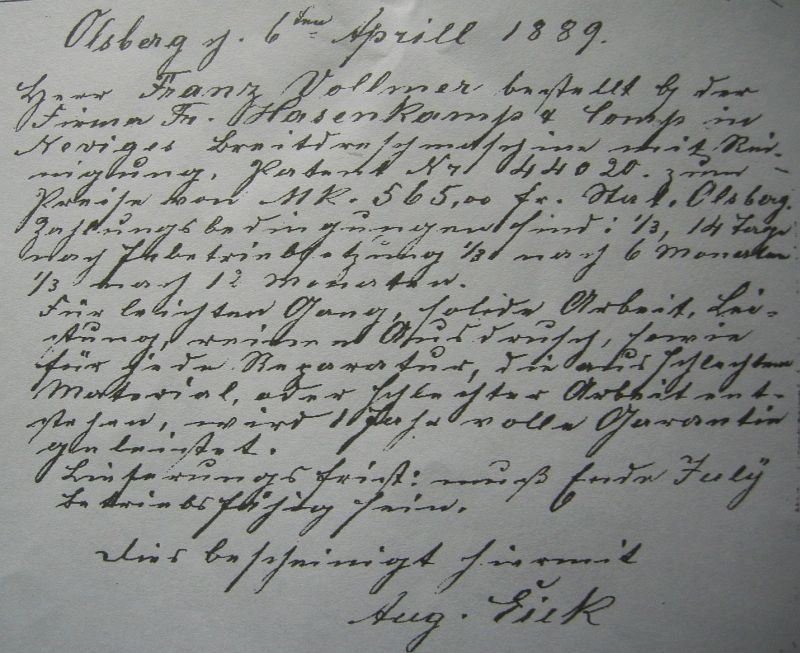 Olsberg d. 6ten Aprill 1889.
Herr Franz Vollmer bestellt b. der
Firma Fr. Hasenkamp & Comp in
Neviges Breitdreschmaschine mit Rei-
nigung, Patent Nr 44020. zum
Preise von MK. 565,00 fr. Stat. Olsberg.
Zahlungsbedingungen sind: 1/3, 14 Tage
nach Inbetriebsetzung 1/3 nach 6 Monaten
1/3 nach 12 Monaten.
Für leichten Gang, solide Arbeit, Lei-
stung, reinen Ausdrusch, sowie
für jede Reparatur, die aus schlechtem
Material, oder schlechter Arbeit ent-
stehen, wird 1 Jahr volle Garantie
geleistet.
Lieferungsfrist: muß Ende Julÿ
betriebsfähig sein.
Dies bescheinigt hiermit
Aug. Eick